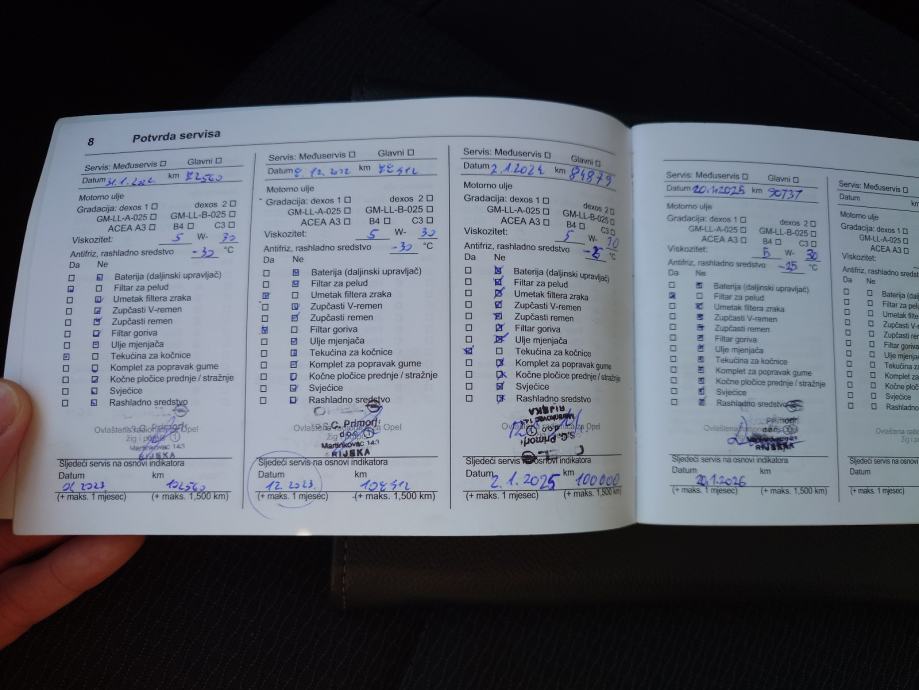 8 Potvrda servisa
Servis: Međuservis Glavni
Datum 31.1.2022. km 72560
Motorno ulje
Gradacija: dexos 1 dexos 2
GM-LL-A-025 GM-LL-B-025
ACEA A3 B4 C3
Viskozitet: 5 W- 30
Antifriz, rashladno sredstvo -30 °C
Da Ne
Baterija (daljinski upravljač)
Filtar za pelud
Umetak filtera zraka
Zupčasti V-remen
Zupčasti remen
Filtar goriva
Ulje mjenjača
Tekućina za kočnice
Komplet za popravak gume
Kočne pločice prednje / stražnje
Svjećice
Rashladno sredstvo
S.C. Primorj
Martinkovac 143
RIJEKA
Sljedeći servis na osnovi indikatora
Datum km
01 2023. 102560
(+ maks. 1 mjesec) (+ maks. 1,500 km)
Servis: Međuservis Glavni
Datum 12. 2022 km 78412
Motorno ulje
Gradacija: dexos 1 dexos 2
GM-LL-A-025 GM-LL-B-025
ACEA A3 B4 C3
Viskozitet: 5 W- 30
Antifriz, rashladno sredstvo -30 °C
Da Ne
Baterija (daljinski upravljač)
Filtar za pelud
Umetak filtera zraka
Zupčasti V-remen
Zupčasti remen
Filtar goriva
Ulje mjenjača
Tekućina za kočnice
Komplet za popravak gume
Kočne pločice prednje / stražnje
Svjećice
Rashladno sredstvo
S.C. Primorj
d.o.o.
Martinkovac 143
RIJEKA
Sljedeći servis na osnovi indikatora
Datum km
12. 2023. 108412
(+ maks. 1 mjesec) (+ maks. 1,500 km)
Servis: Međuservis Glavni
Datum 2.1.2024 km 84879
Motorno ulje
Gradacija: dexos 1 dexos 2
GM-LL-A-025 GM-LL-B-025
ACEA A3 B4 C3
Viskozitet: 5 W-
Antifriz, rashladno sredstvo -25 °C
Da Ne
Baterija (daljinski upravljač)
Filtar za pelud
Umetak filtera zraka
Zupčasti V-remen
Zupčasti remen
Filtar goriva
Ulje mjenjača
Tekućina za kočnice
Komplet za popravak gume
Kočne pločice prednje / stražnje
Svjećice
Rashladno sredstvo
RIJEKA
S.C. Primorj
Sljedeći servis na osnovi indikatora
Datum km
2.1.2025 100000
(+ maks. 1 mjesec) (+ maks. 1,500 km)
Servis: Međuservis Glavni
Datum 20.1.2025 km 90737
Motorno ulje
Gradacija: dexos 1 dexos 2
GM-LL-A-025 GM-LL-B-025
ACEA A3 B4 C3
Viskozitet: 5 W- 30
Antifriz, rashladno sredstvo -25 °C
Da Ne
Baterija (daljinski upravljač)
Filtar za pelud
Umetak filtera zraka
Zupčasti V-remen
Zupčasti remen
Filtar goriva
Ulje mjenjača
Tekućina za kočnice
Komplet za popravak gume
Kočne pločice prednje / stražnje
Svjećice
Rashladno sredstvo
Sljedeći servis na osnovi indikatora
Datum km
20.1.2026
(+ maks. 1 mjesec) (+ maks. 1,500 km)
Servis: Međuservis
Datum
Motorno ulje
Gradacija: dexos 1
GM-LL-A-025
ACEA A3
Viskozitet:
Antifriz, rashladno sredstv
Da Ne
Baterija (dalj
Filtar za pelu
Umetak filter
Zupčasti V-re
Zupčasti rem
Filtar goriva
Ulje mjenjača
Tekućina za
Komplet za p
Kočne pločic
Svjećice
Rashladno s
Sljedeći servis na osnovi
Datum
(+ maks. 1 mjesec)